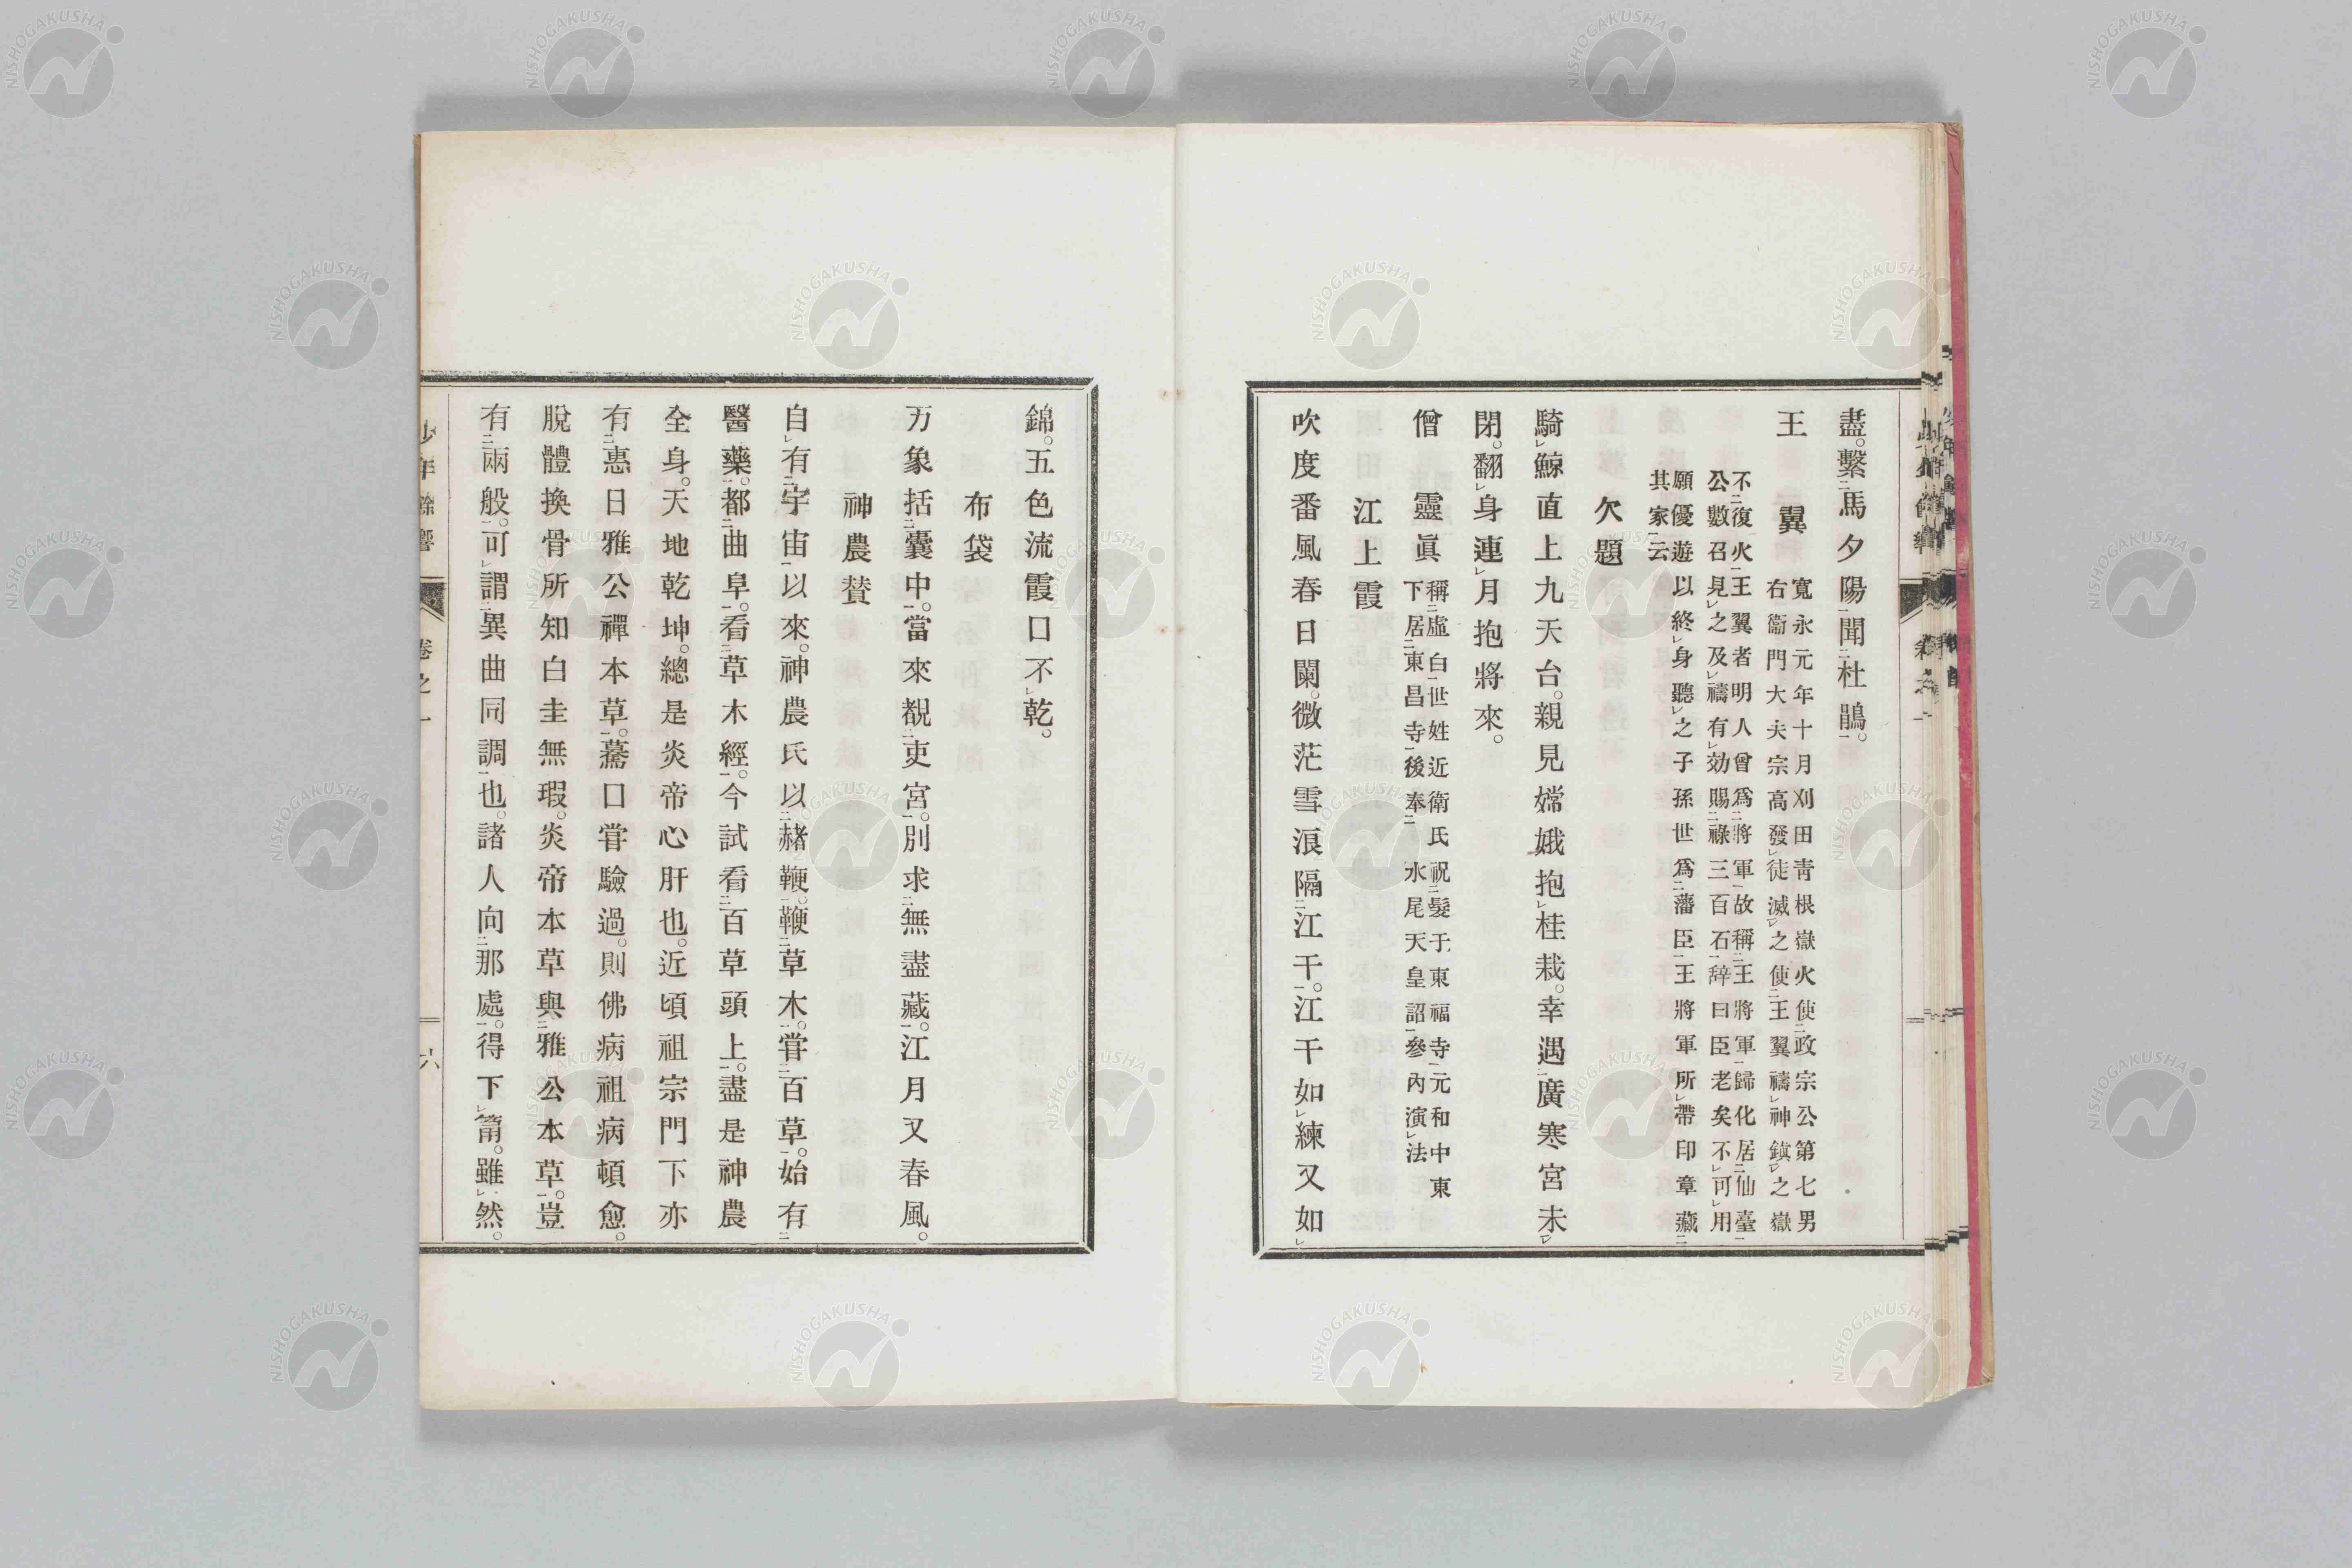 盡。繫馬夕陽聞杜鵑。
王翼
寬永元年十月刈田靑根嶽火使政宗公第七男
右衞門大夫宗高發徒滅之使王翼禱神鎭之嶽
不復火王翼者明人曾爲將軍故稱王將軍歸化居仙臺
公數召見之及禱有効賜祿三百石辭曰臣老矣不可用
願優遊以終身聽之子孫世爲藩臣王將軍所帶印章藏
其家云
欠題
騎鯨直上九天台。親見嫦娥抱桂栽。幸遇廣寒宮未
閉。翻身連月抱將來。
僧靈眞
稱虛白世姓近衛氏祝髮于東福寺元和中東
下居東昌寺後奉水尾天皇詔參內演法
江上霞
吹度番風春日闌。微茫雪浪隔江干。江干如練又如
錦。五色流霞口不乾。
布袋
万象括囊中。當來覩吏宮。別求無盡藏。江月又春風。
神農賛
自有宇宙以來。神農氏以赭鞭。鞭草木。嘗百草。始有
醫藥。都曲阜。看草木經。今試看百草頭上。盡是神農
全身。天地乾坤。總是炎帝心肝也。近頃祖宗門下亦
有惠日雅公禪本草。驀口嘗驗過。則佛病祖病頓愈。
脫體換骨所知白圭無瑕。炎帝本草與雅公本草。豈
有兩般。可謂異曲同調也。諸人向那處。得下觜。雖然。
少年餘響
卷之一
六
NISHOGAKUSHA